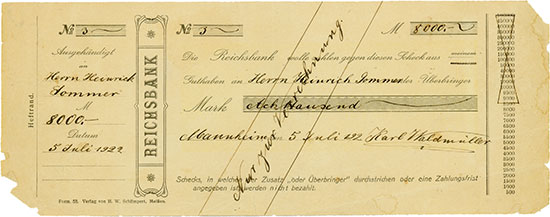 № 3
Ausgehändigt
an
Herrn Heinrich
Sommer
M
8000.-
Datum
5 Juli 1922
Heftrand.
REICHSBANK
№ 3 M 8000.-
Die Reichsbank wolle zahlen gegen diesen Scheck aus
Guthaben an Herrn Heinrich Sommer oder Überbringer
Mark Acht Tausend
Mannheim 5 Juli 192 Karl Waldmüller
Nur zur Verrechnung
Schecks, in welchen der Zusatz „oder Überbringer" durchstrichen oder eine Zahlungsfrist
angegeben ist, werden nicht bezahlt.
Form. 53. Verlag von H. W. Schlimpert, Meißen.